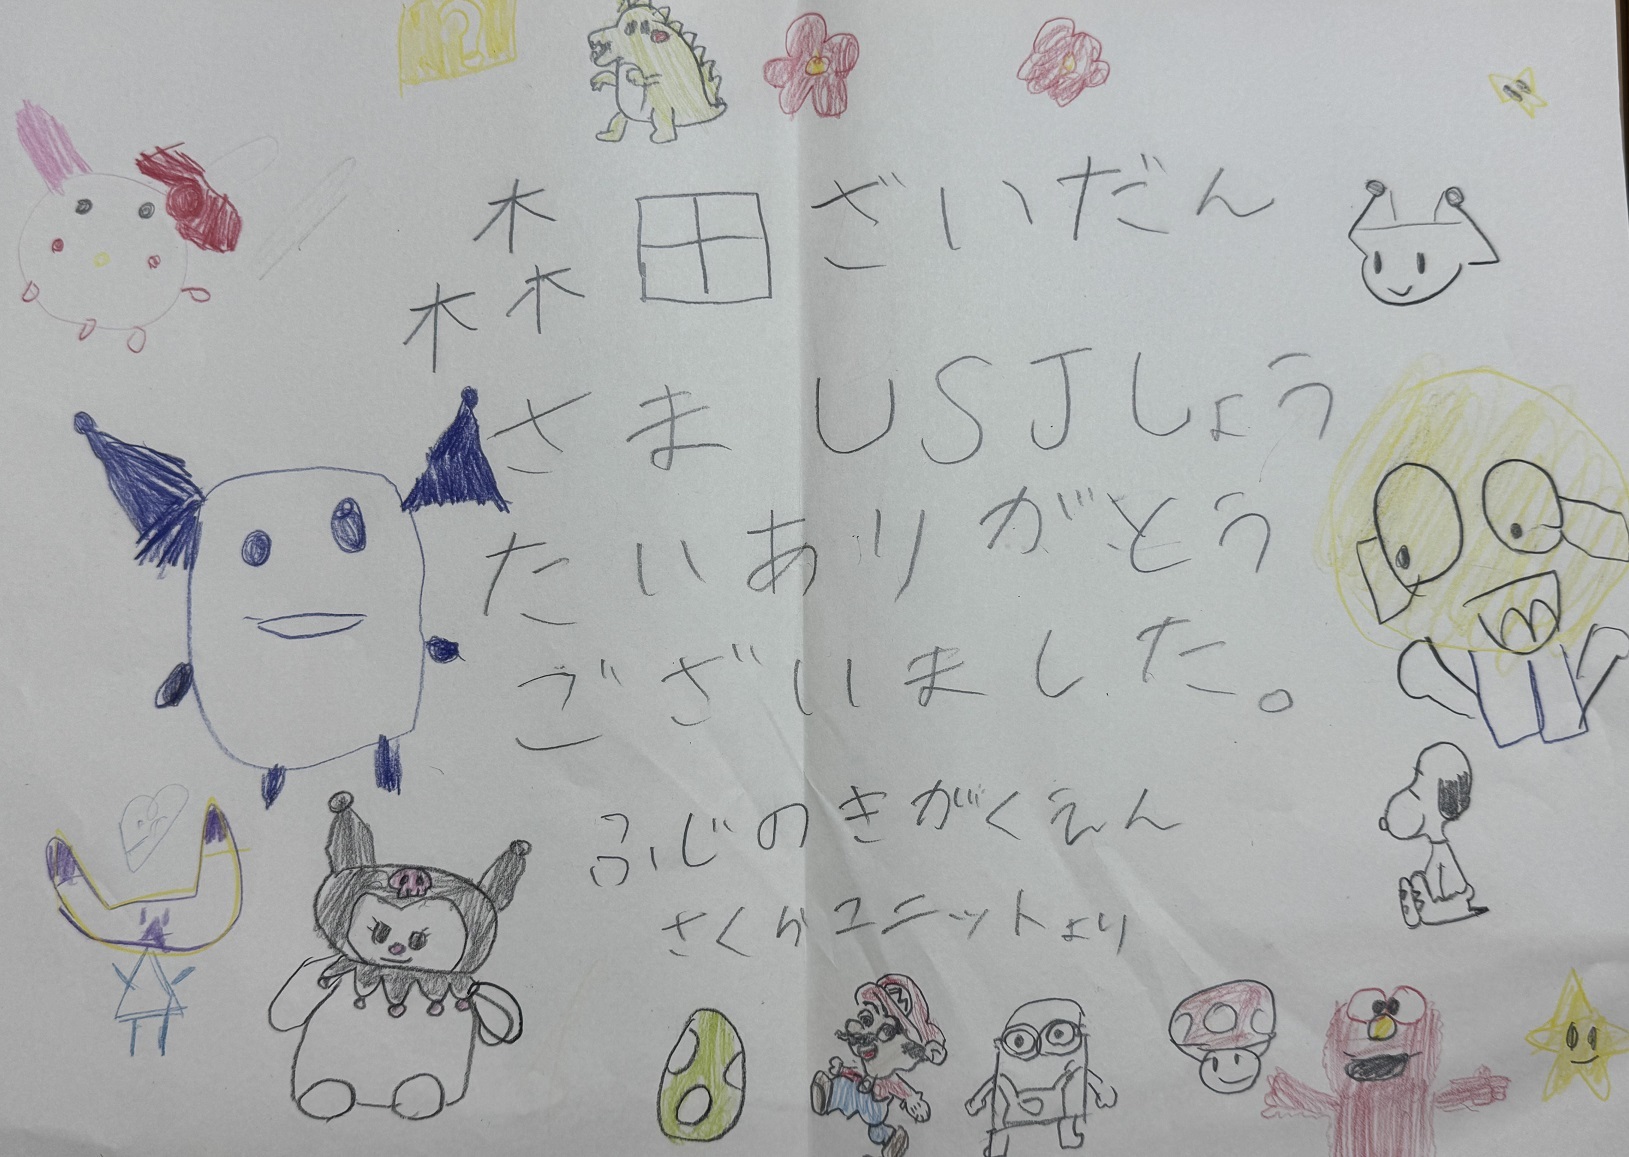 ?
森田ざいだん
さまUSJしょう
たいありがとう
ございました。
ふじのきがくえん
さくらユニットより
M